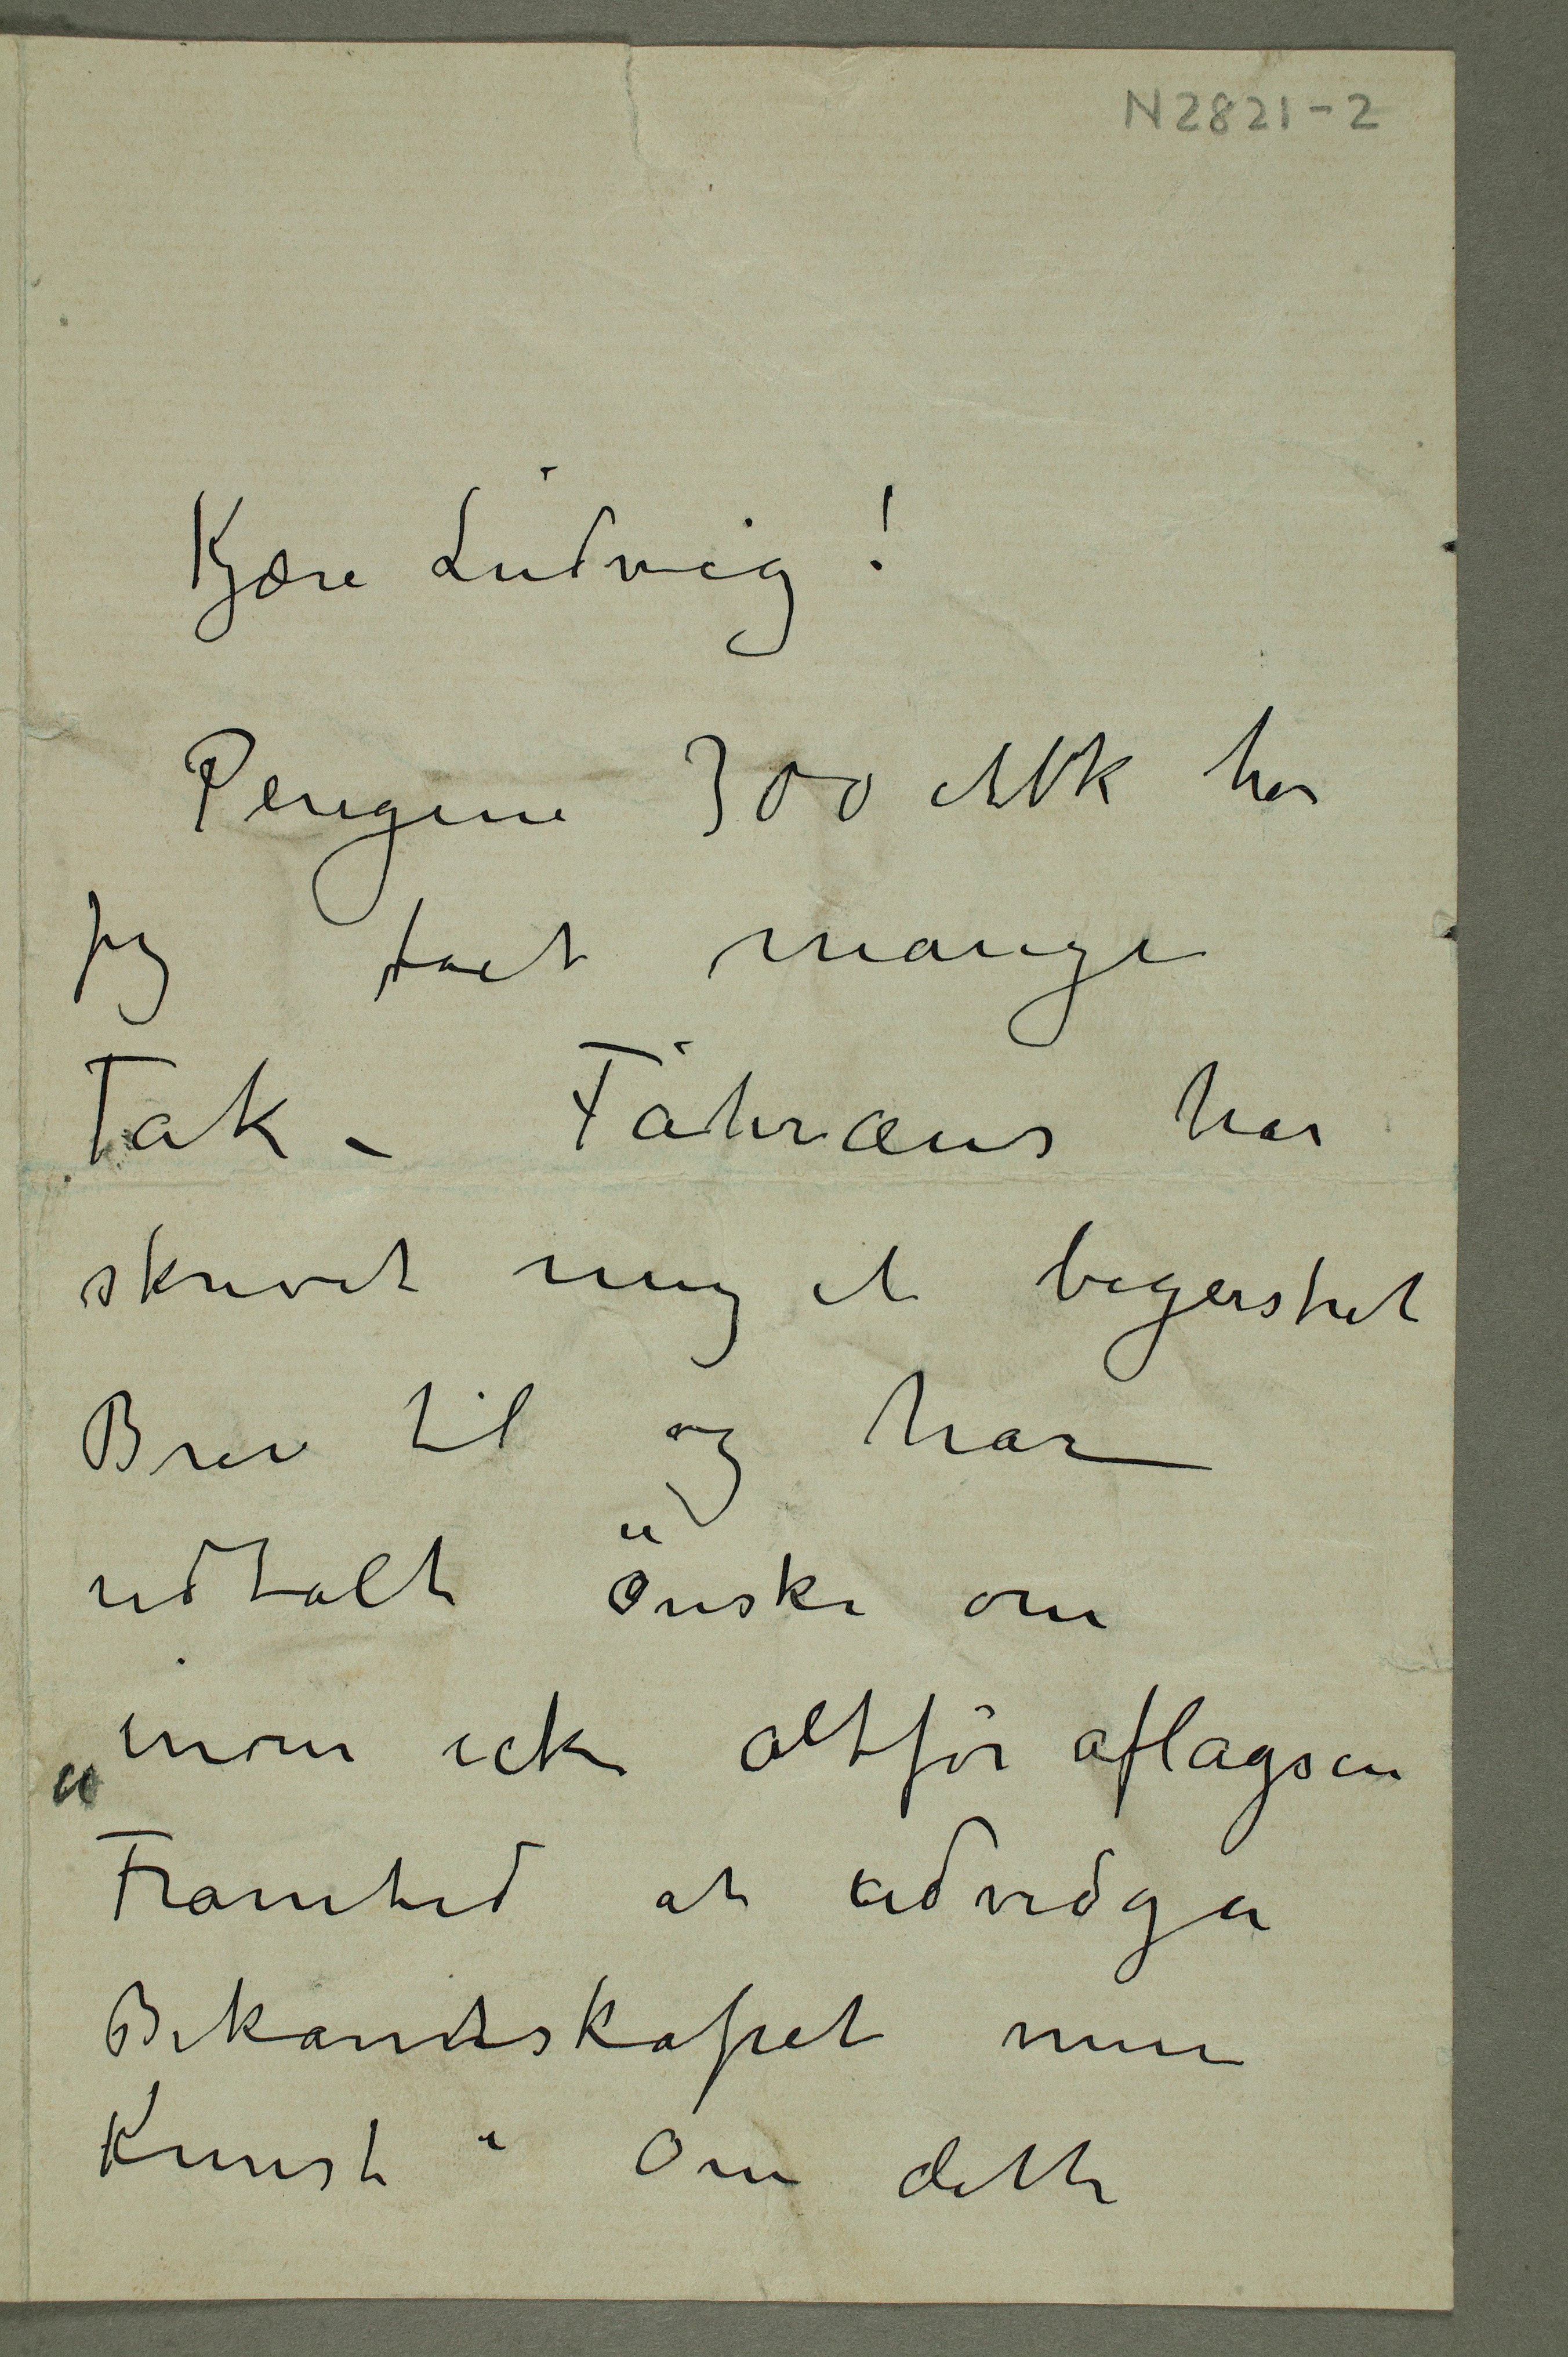 N2821-2
Kjære Ludvig!
Pengene 300 Mk har
jeg fået mange
Tak – Fåhræus har
skrevet mig et begeistret
Brev til og har
udtalt önske om
„inom icke altför aflägsen
Framtid at udvidga
Bekantskapet min
Kunst“ Om dette